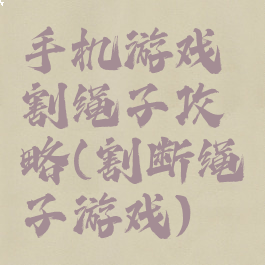 手机游戏
割绳子攻
略(割断绳
子游戏)